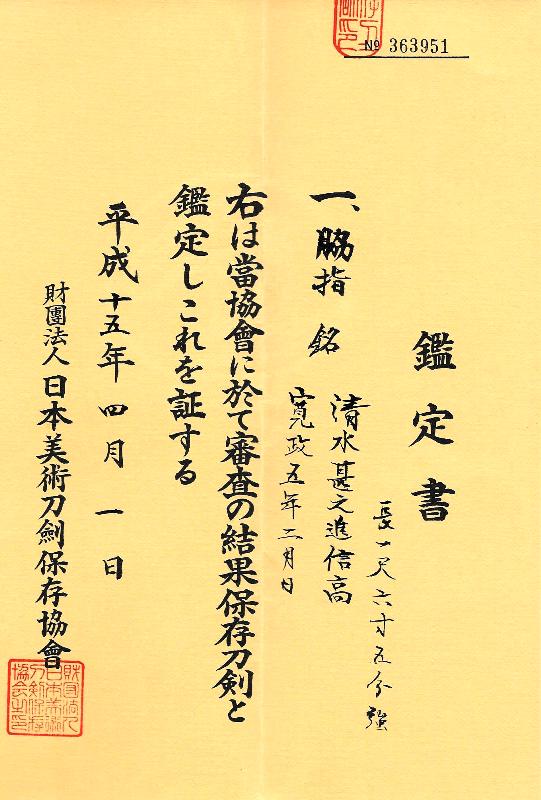 № 363951
鑑定書
一、脇指 銘
長一尺六寸五分強
清水甚之進信高
寛政五年二月日
右は當協會に於て審査の結果保存刀剣と
鑑定しこれを証する
平成十五年四月一日
財團法人日本美術刀劍保存協會
財団法人
日本美術
刀剣保存
協会之印